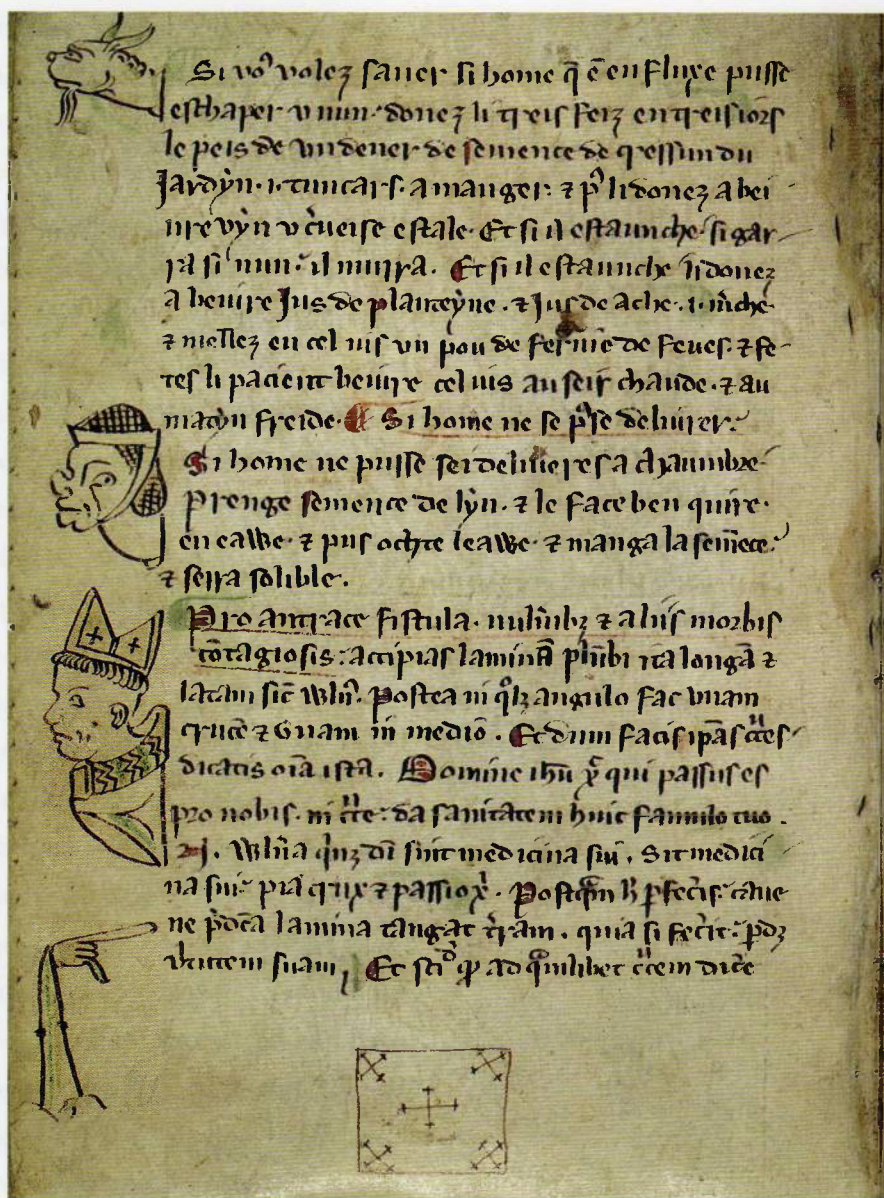 Si voꝰ volez sauer si home q̄ ē en fluxe pusse
eschaper v nun. donez li treis feiz en treis iors
le peis de vn dener de semence de cressun du
Jardyn .i. tuncars. a manger. ⁊ pꝰ li donez a bei
ure vyn v cueise estale. Et si il estaunche si gar
ra si nun. il murra. Et si il estaunche donez
a beiure Jus de planteyne. ⁊ Jus de Ache .i. mche
⁊ mettez en cel ius vn pou de ferine de feues. ⁊ fe
tes li pacient beiure cel ius au seir chaude. ⁊ au
matyn freide. Si home ne se pꝰse deliurer.
Si home ne pusse sei deliuerer a chaumbre
prenge semence de lyn. ⁊ le face ben quire
en eawe. ⁊ pus oste le awe. ⁊ manga la semēce.
⁊ serra solible.
Pro antrace fistula. uulnibꝫ ⁊ aliis morbis
cōtagiosis. accipias laminā plūbi ita longā ⁊
latam sic̄ Wln̄. Postea in qͦlꝫ angulo fac vnam
crucē ⁊ vnam in mediō. Et dum facis ip̄as cͨces
dicatis oīa ista. Domine ihū xp̄ qui passus es
pro nobis. in cͨce. da sanitatem huic famulo tuo.
.N. Wln̄a qͥnqꝫ dī sint medicina sui. Sit medici
na sui. pia crux ⁊ passio xp̄. Postqͣm h̄ ꝑfecͥs. caue
ne p̄dc̄a lamina tangat tͥram. quia si fecͥt. ꝑdꝫ
vͥtutem suam. Et sciͦ ꝙ ad qͣmlibet cͨcem dicͥe